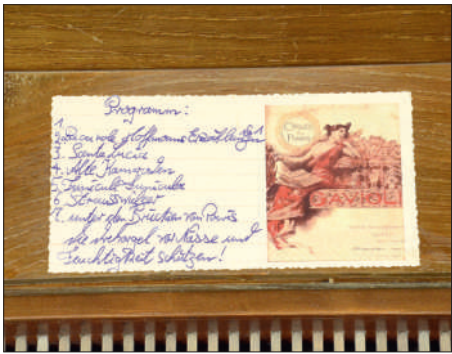 Programm:
1.
2. Barcarole Hoffmanns Erzählungen
3. Santa Lucia
4. Alte Kameraden
5. Funiculi Funicula
6. Strausswalzer
7. unter den Brücken von Paris
die Drehorgel vor Nässe und
Feuchtigkeit schützen!